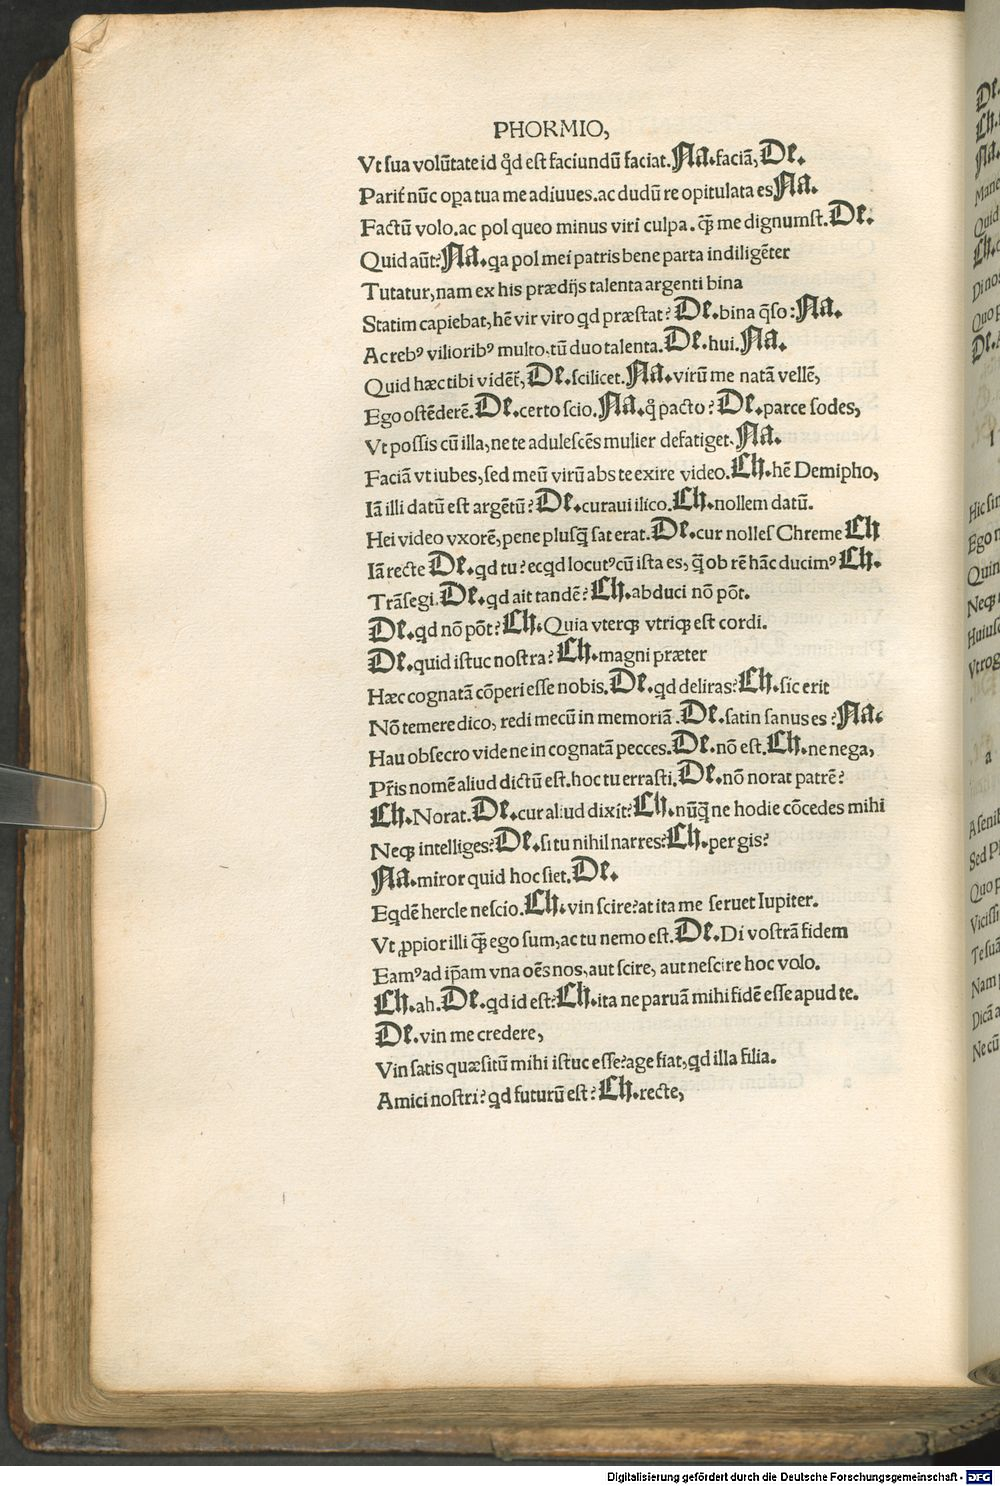 PHORMIO,
Vt sua volūtate id qd̄ est faciundū faciat. Na. faciā, De.
Parit᷑ nūc oꝑa tua me adiuues. ac dudū re opitulata es Na.
Factū volo. ac pol queo minus viri culpa. q̄ꝫ me dignumst. De.
Quid aūt? Na. qa pol mei patris bene parta indiligēter
Tutatur, nam ex his prædijs talenta argenti bina
Statim capiebat, hē vir viro qd præstat? De. bina q̄so: Na.
Ac rebꝰ vilioribꝰ multo. tū duo talenta. De. hui. Na.
Quid hæc tibi vident᷑, De. scilicet. Na. virū me natā vellē,
Ego ostēderē. De. certo scio. Na. q̊ pacto? De. parce sodes,
Vt possis cū illa, ne te adulescēs mulier defatiget. Na.
Faciā vt iubes, sed meū virū abs te exire video. Ch. hē Demipho,
Iā illi datū est argētū? De. curaui ilico. Ch. nollem datū.
Hei video vxorē, pene plusq̄ꝫ sat erat. De. cur nolles Chreme Ch
Iā recte De. qd tu? ecqd locutꝰ cū ista es, q̄ꝫ ob rē hāc ducimꝰ Ch.
Trāsegi. De. qd ait tandē? Ch. abduci nō pōt.
De. qd nō pōt? Ch. Quia vterqꝫ vtriqꝫ est cordi.
De. quid istuc nostra? Ch. magni præter
Hæc cognatā cōperi esse nobis. De. qd deliras? Ch. sic erit
Nō temere dico, redi mecū in memoriā. De. satin sanus es? Na.
Hau obsecro vide ne in cognatā pecces. De. nō est. Ch. ne nega,
Pr̄is nomē aliud dictū est. hoc tu errasti. De. nō norat patrē?
Ch. Norat. De. cur aliud dixit? Ch. nūq̄ꝫ ne hodie cōcedes mihi
Neqꝫ intelliges? De. si tu nihil narres? Ch. pergis?
Na. miror quid hoc siet. De.
Eqdē hercle nescio. Ch. vin scire? at ita me seruet Iupiter.
Vt ꝓpior illi q̄ꝫ ego sum, ac tu nemo est. De. Di vostrā fidem
Eamꝰ ad ip̄am vna oēs nos, aut scire, aut nescire hoc volo.
Ch. ah. De. qd id est? Ch. ita ne paruā mihi fidē esse apud te.
De. vin me credere,
Vin satis quæsitū mihi istuc esse? age fiat, qd illa filia.
Amici nostri? qd futurū est? Ch. recte,
De.
Ch.
Na.
Mane
Quid
Ch.
Di nos
Quo p
De.
Hic sin
Ego n
Quin
Neqꝫ
Huius
Vtrog
a
A senib
Sed P
Quo p
Viciss
Te suā
Nam p
Dicā a
Ne cū
Digitalisierung gefördert durch die Deutsche Forschungsgemeinschaft - DFG